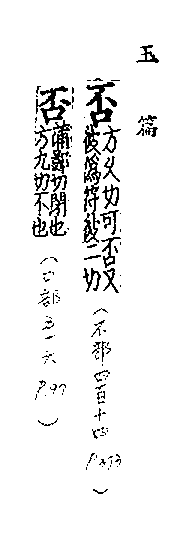 玉篇
否 方久切可否又
彼僞符鄙二切
(不部四百十四 P.373)
否 蒲鄙切閉也
方九切不也
(口部五十六 P.97)